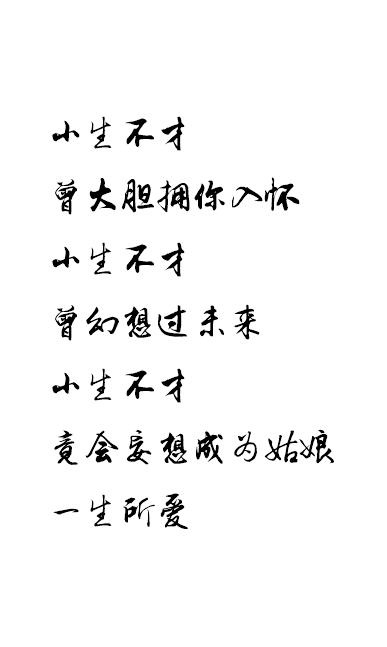 小生不才
曾大胆拥你入怀
小生不才
曾幻想过未来
小生不才
竟会妄想成为姑娘
一生所爱